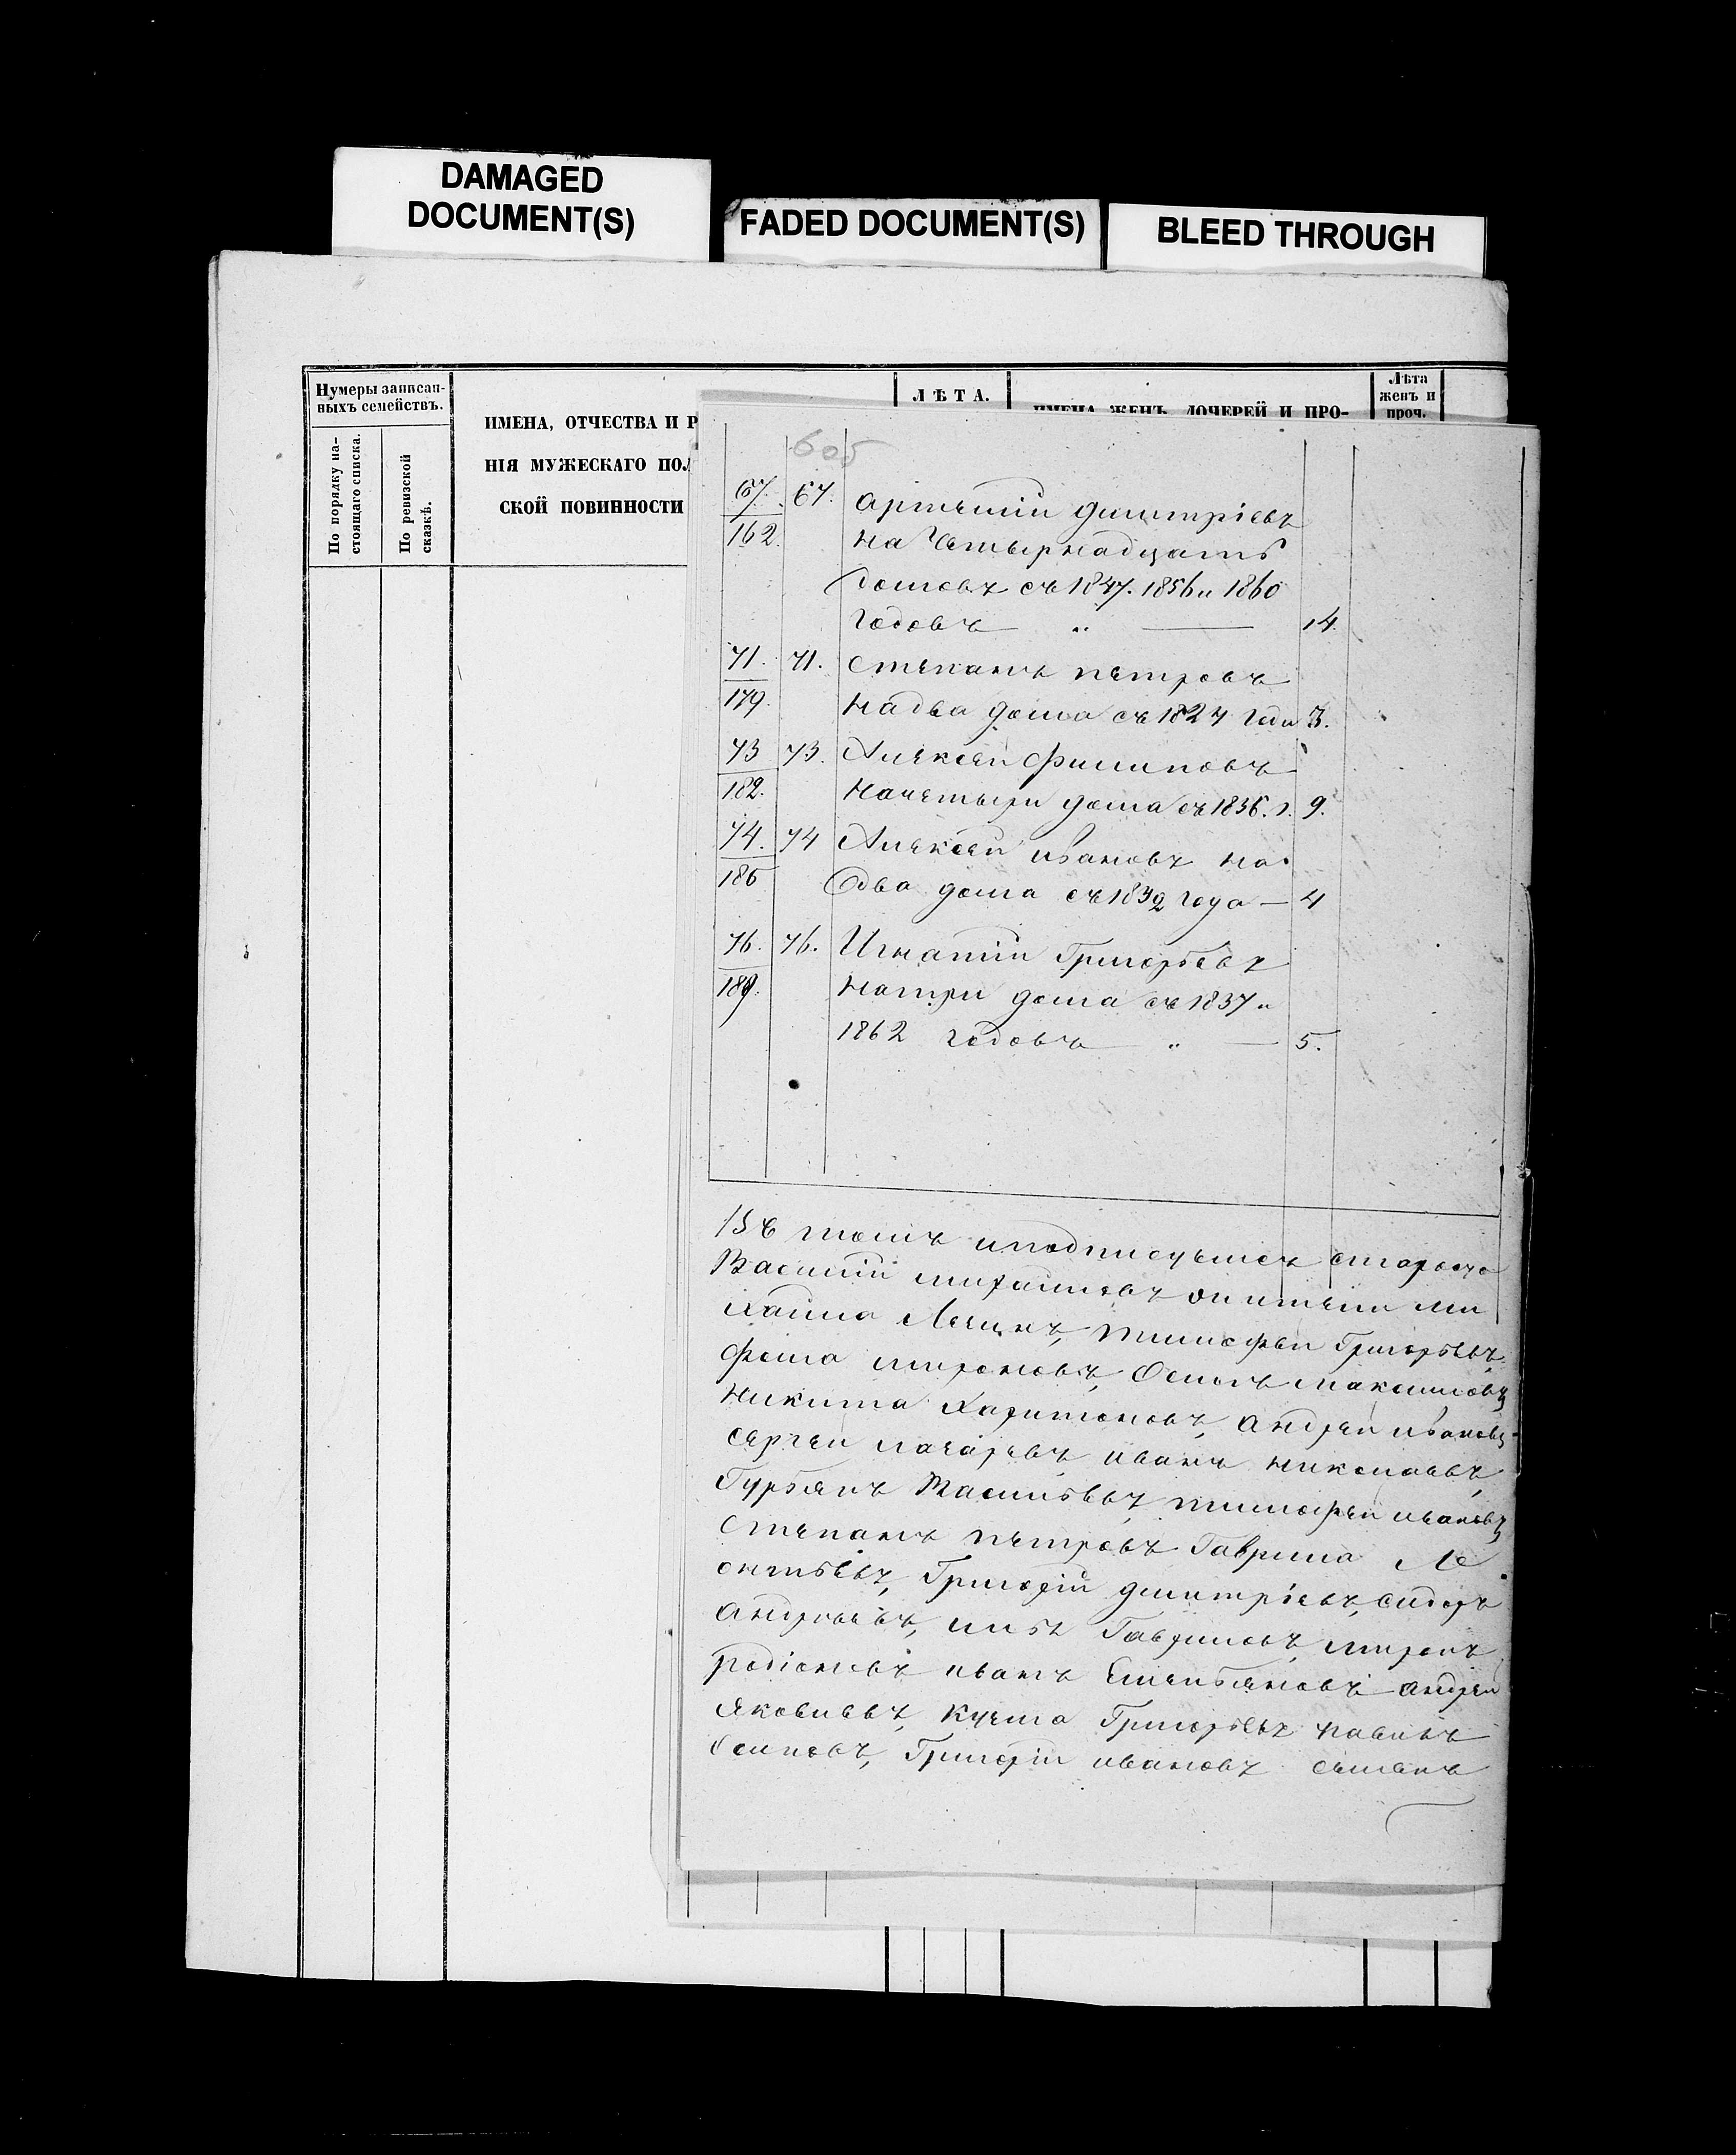 DAMAGED
DOCUMENT(S)
FADED DOCUMENT(S)
BLEED THROUGH
Нумеры записан-
ныхъ семействъ.
По порядку на-
стоящаго списка.
По ревизской
сказкѣ.
ИМЕНА, ОТЧЕСТВА И
НІЯ МУЖЕСКАГО ПОЛ
СКОЙ ПОВИННОСТИ
ЛѢТА.
ИМЕНА ЖЕНЪ, ДОЧЕРЕЙ И ПРО-
Лѣта
женъ и
проч.
605
67. 67. артемій дмитріевъ
162. на Четырнадцать
домовъ съ 1847. 1856 и 1860
годовъ — 14.
71. 71. степанъ петровъ
179. на два дома съ 1827 года 3.
73 73. Алексей филиповъ
182. на четыри дома съ 1836. г. 9.
74. 74 Алексей ивановъ на
186 два дома съ 1832 года — 4
76. 76. Игнатій Григорьевъ
189. на три дома съ 1837 и
1862 годовъ — 5.
Въ томъ и подписуемся староста
Василий михаиловъ
хаила тимофеи Григорьевъ,
фома мироновъ, Осипъ максимовъ
никита Харитоновъ, андреи ивановъ
сергеи иванъ николаевъ,
Гурьянъ Васильевъ, тимофеи ивановъ
степанъ петровъ Гаврила Ле
онтьевъ, Григорій дмитріевъ, сидоръ
андреевъ, илья Гавриловъ, миронъ
родіоновъ иванъ Емельяновъ андреи
яковлевъ, Кузма Григорьевъ павелъ
Осиповъ, Григорій ивановъ семенъ